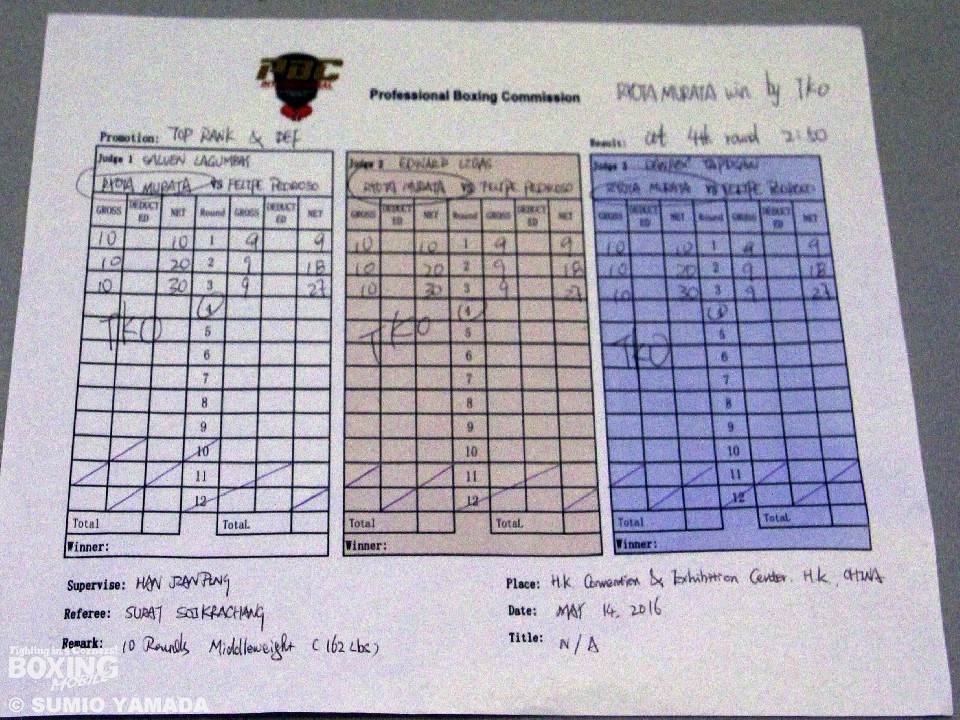 PBC
INTERNATIONAL
Professional Boxing Commission
RYOTA MURATA win by TKO
Promotion: TOP RANK & DEF
Result: at 4th round 2:50
Judge 1 SALVEN LAGUMBAS
RYOTA MURATA VS FELIPE PEDROSO
GROSS DEDUCTED NET Round GROSS DEDUCTED NET
10 10 1 9 9
10 20 2 9 18
10 30 3 9 27
4
TKO
5
6
7
8
9
10
11
12
Total Total
Winner:
Judge 2 EDWARD LIGAS
RYOTA MURATA VS FELIPE PEDROSO
GROSS DEDUCTED NET Round GROSS DEDUCTED NET
10 10 1 9 9
10 20 2 9 18
10 30 3 9 27
4
TKO
5
6
7
8
9
10
11
12
Total Total
Winner:
Judge 3
RYOTA MURATA VS FELIPE PEDROSO
GROSS DEDUCTED NET Round GROSS DEDUCTED NET
10 10 1 9 9
10 20 2 9 18
10 30 3 9 27
4
TKO
5
6
7
8
9
10
11
12
Total Total
Winner:
Supervise: HAN JIANPENG
Referee: SURAT SOIKRACHANG
Remark: 10 Rounds Middleweight (162 Lbs)
Place: H.K. Convention & Exhibition Center. H.K, CHINA
Date: MAY 14, 2016
Title: N/A
Fighting in 4 Corners!
BOXING
MOBILE
© SUMIO YAMADA